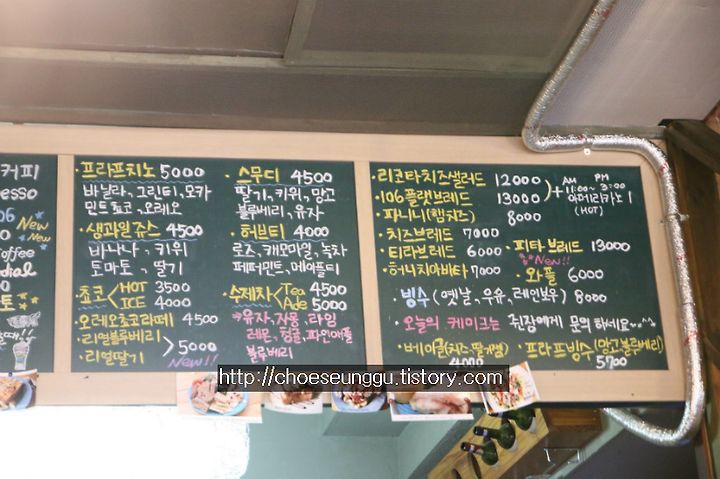 커피
esso
06 New
New
offee
dial
프라프치노 5000
바닐라, 그린티, 모카
민트쵸코, 오레오
생과일쥬스 4500
바나나, 키위
토마토, 딸기
쵸코 HOT 3500
ICE 4000
오레오쵸코라떼 4500
리얼블루베리
리얼딸기 > 5000
New!!
스무디 4500
딸기, 키위, 망고
블루베리, 유자
허브티 4000
로즈, 캐모마일, 녹차
페퍼민트, 메이플티
수제차 < Tea 4500
Ade 5000
유자, 자몽, 라임
레몬, 청귤, 파인애플
블루베리
리코타치즈샐러드 12000
106플랫브레드 13000
파니니(햄치즈) 8000
+ AM PM
11:00~3:00
아메리카노 1
(HOT)
치즈브레드 7000
티라브레드 6000
허니치아바타 7000
피타브레드 13000
New!!
와플 6000
빙수 (옛날, 우유, 레인보우) 8000
오늘의 케이크는 쥔장에게 문의하세요~^^
베이글(치즈, 딸기쨈)
4000
프라프빙수 (망고블루베리)
5700
http://choeseunggu.tistory.com